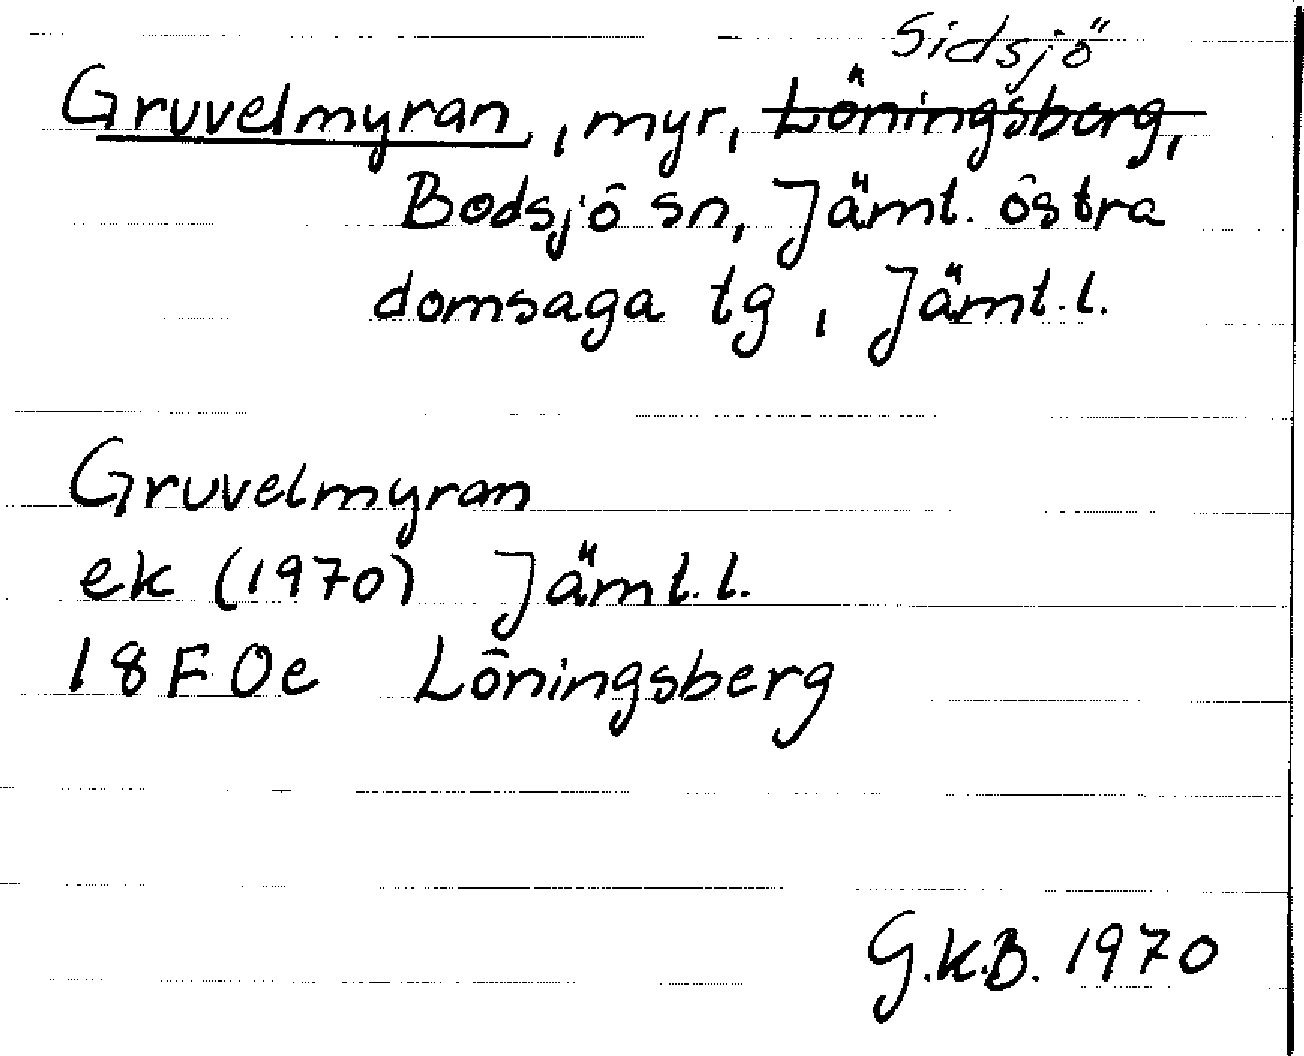 Sidsjö
Gruvelmyran, myr, Löningsberg,
Bodsjö sn, Jämt. östra
domsaga tg, Jämt. l.
Gruvelmyran
ek (1970) Jämt. l.
18 F 0e Löningsberg
G.K.B. 1970